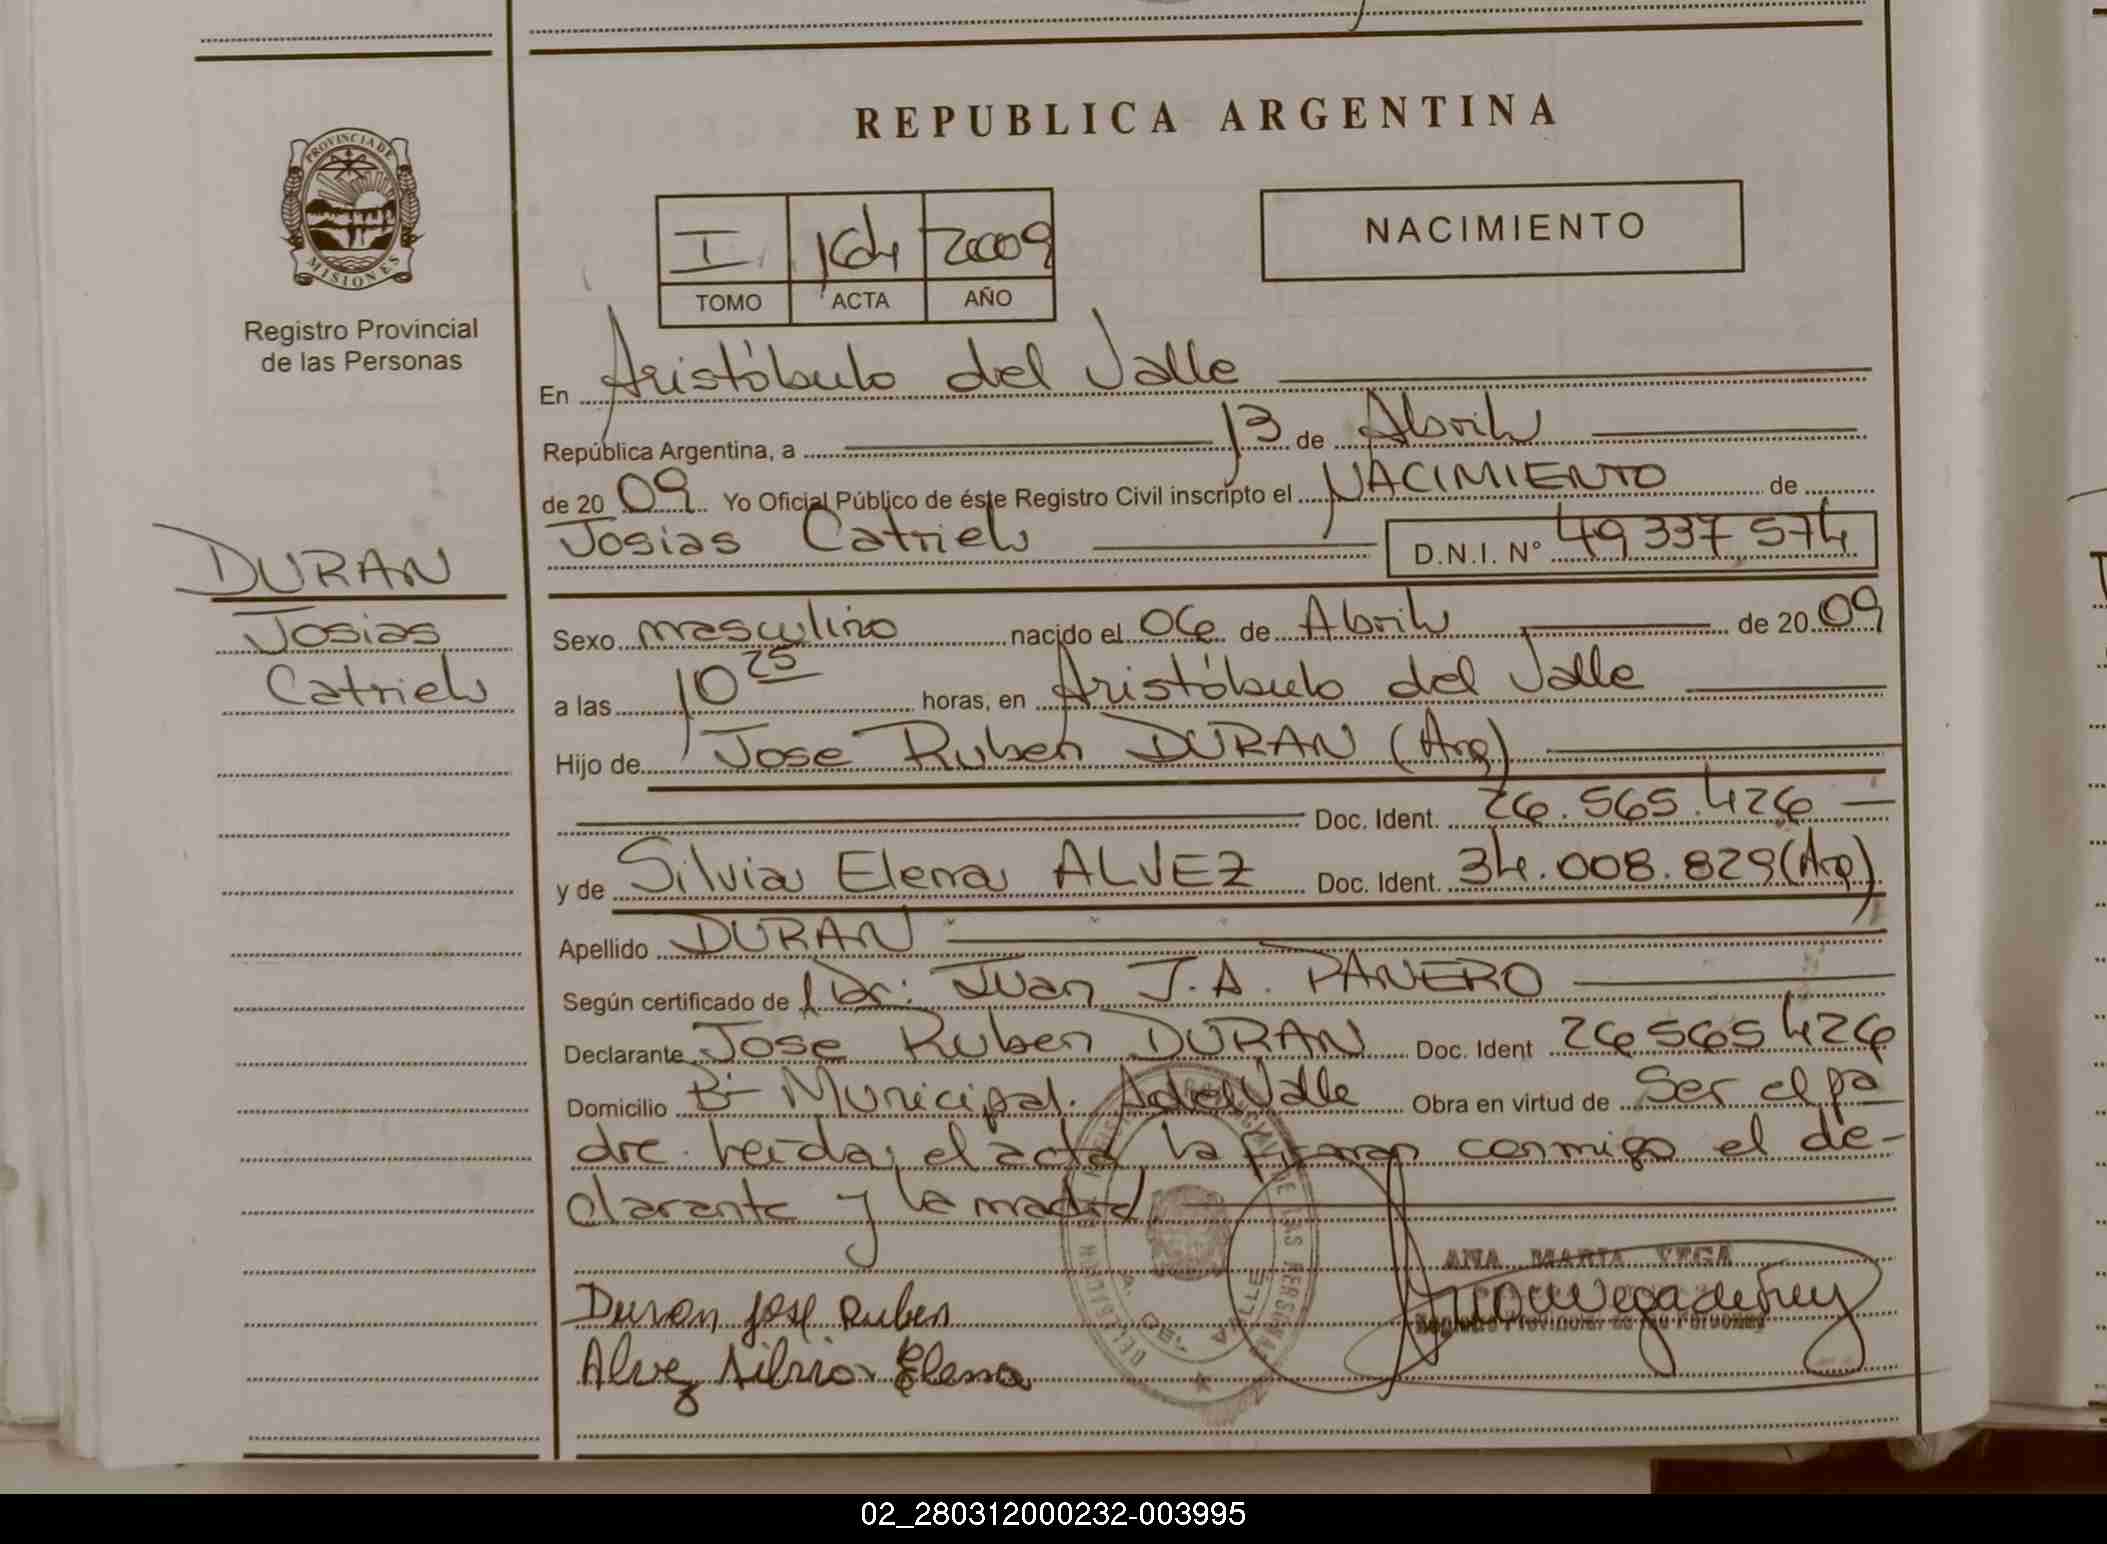 REPUBLICA ARGENTINA
PROVINCIA DE
MISIONES
Registro Provincial
de las Personas
I 164 2009
TOMO ACTA AÑO
NACIMIENTO
En Aristóbulo del Valle
República Argentina, a 13 de Abril
de 2009 Yo Oficial Público de éste Registro Civil inscripto el NACIMIENTO de
Josias Catriel D.N.I. Nº 49337574
DURAN
Josias
Catriel
Sexo masculino nacido el 06 de Abril de 2009
a las 10 25 horas, en Aristóbulo del Valle
Hijo de Jose Ruben DURAN (Arg)
Doc. Ident. 26.565.426
y de Silvia Elena ALVEZ Doc. Ident. 34.008.829 (Arg)
Apellido DURAN
Según certificado de Dr: Juan J.A. PANERO
Declarante Jose Ruben DURAN Doc. Ident 26565426
Domicilio Bº Municipal. A del Valle Obra en virtud de Ser el pa
dre. Leída el acta la firman conmigo el de-
clarante y la madre.
ANA MARIA VEGA
Registro Provincial de las Personas
Duran jose Ruben
Alvez Silvia Elena
A. DEL VALLE
02_280312000232-003995